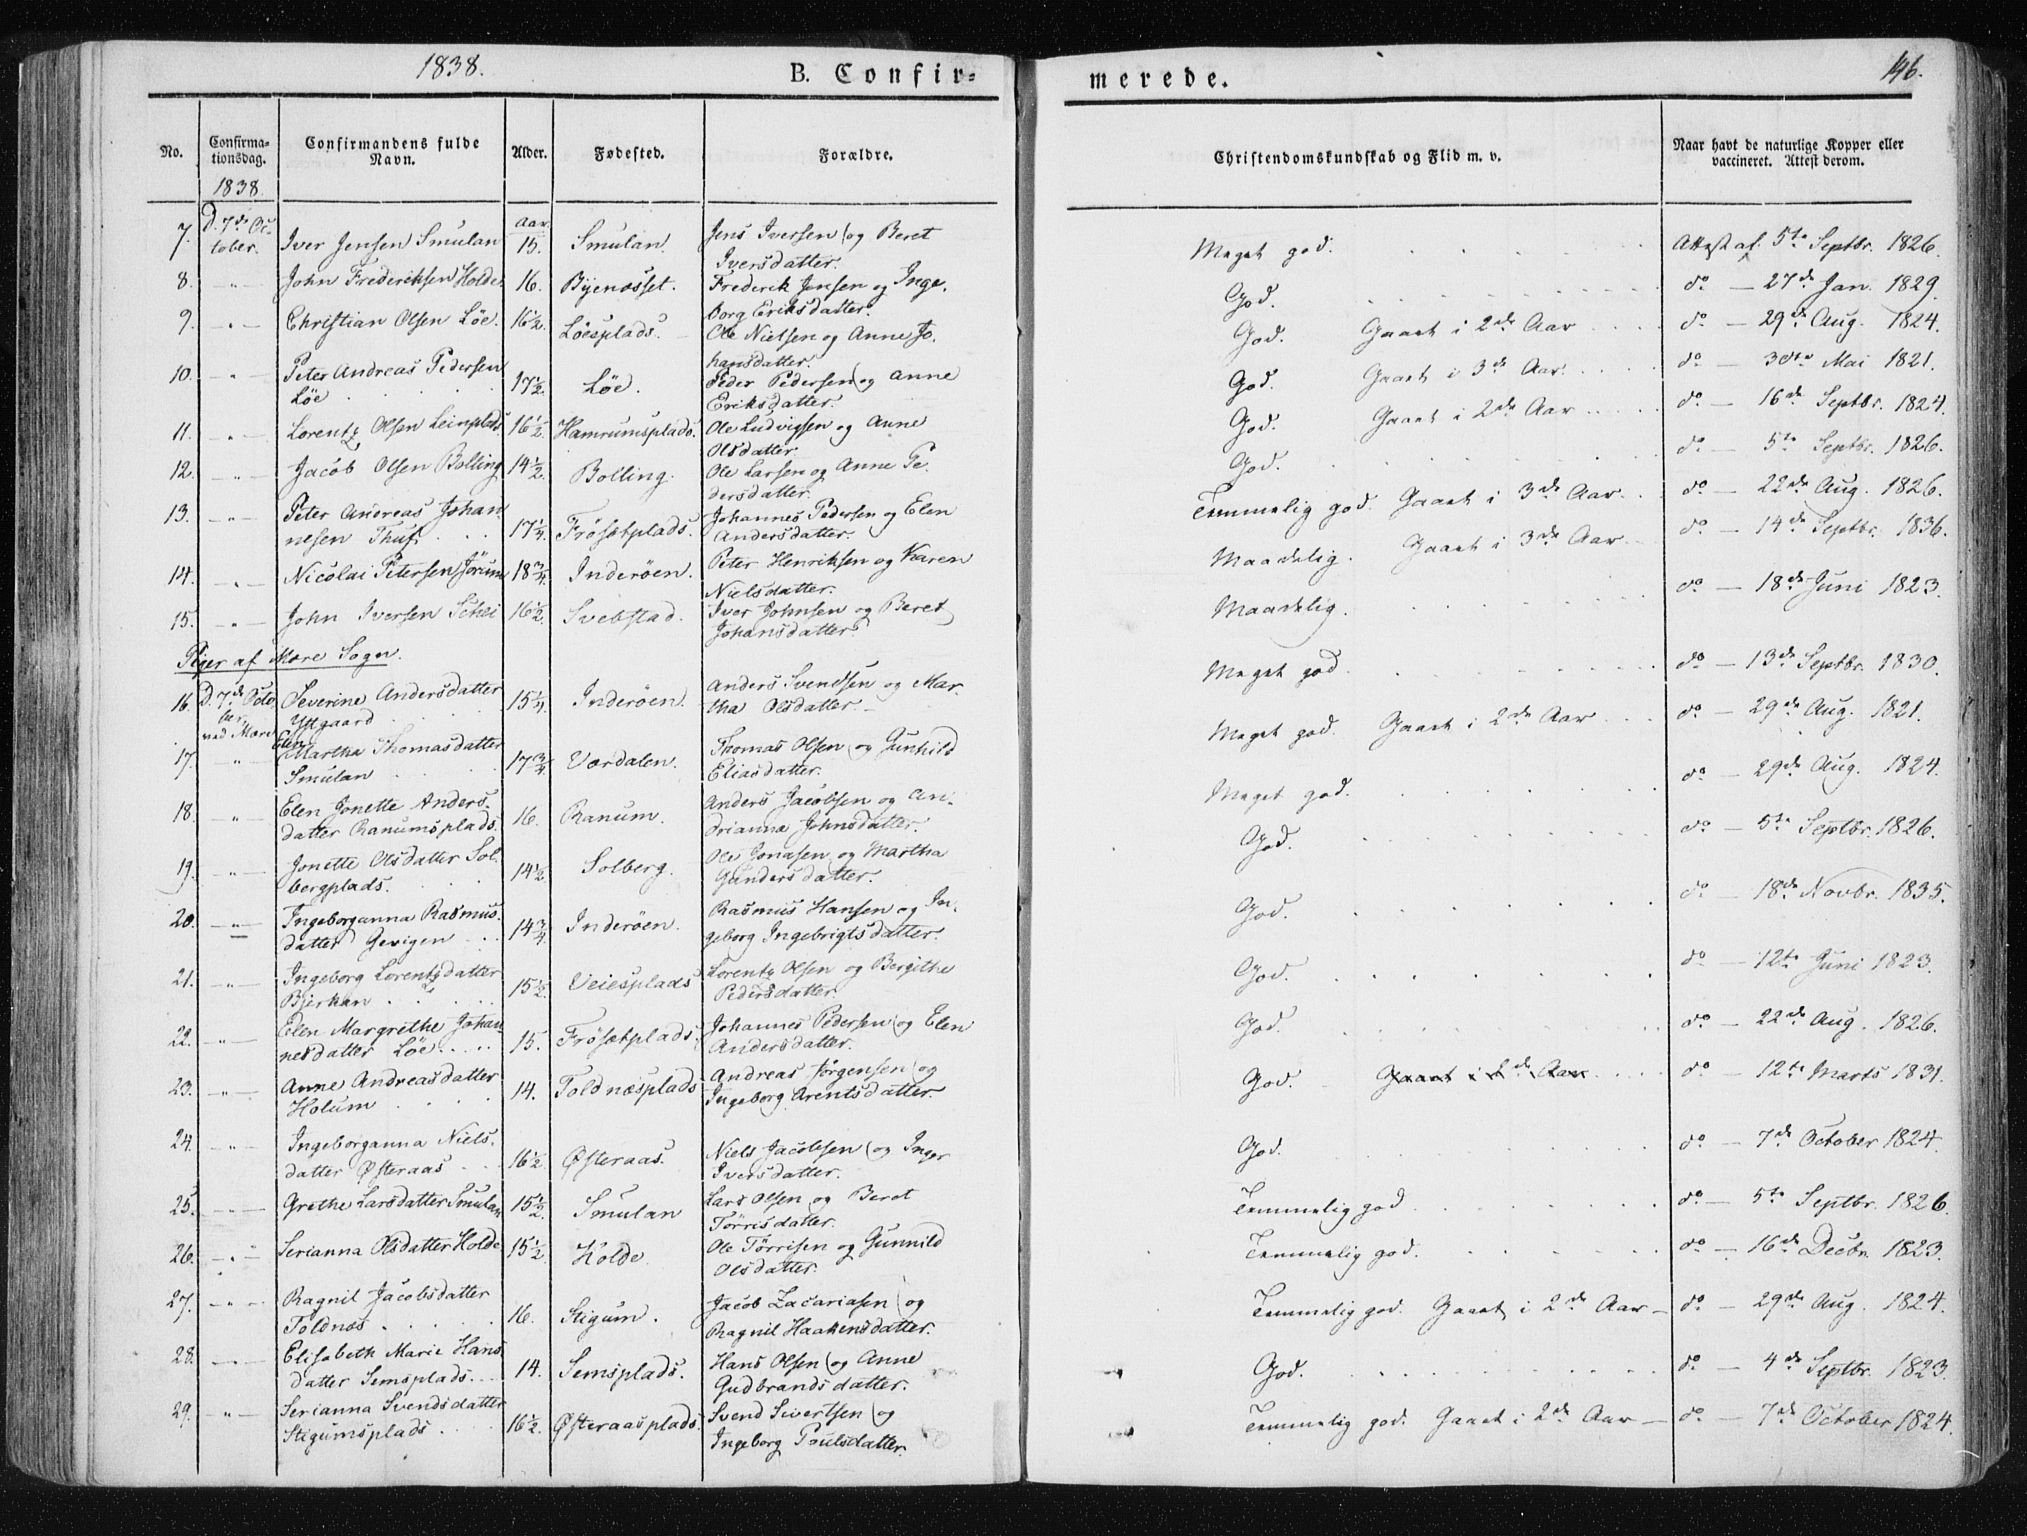 1838.
B. Confir=
merede.
146.
No.
Confirma-
tionsdag.
Confirmandens fulde
Navn.
Alder.
Fødested.
Forældre.
Christendomskundskab og Flid m. v.
Naar havt de naturlige Kopper eller
vaccineret. Attest derom.
1838.
7. D. 7de Oc- Iver Jensen Smulan Aar 15. Smulan. Jens Iversen og Beret Meget god. Attest af 5te Septbr. 1826.
tober. Iversdatter.
8. -"- John Frederiksen Holde 16. Byenæsset. Frederik Jensen og Inge- God. do - 27de Jan. 1829.
borg Eriksdatter.
9. -"- Christian Olsen Løe. 16½. Løesplads. Ole Nielsen og Anne Jo- God. Gaaet i 2de Aar do - 29de Aug. 1824.
hansdatter.
10. -"- Peter Andreas Pedersen 17½. Løe. Peder Pedersen og Anne God. Gaaet i 3de Aar. do - 30te Mai 1821.
Løe Eriksdatter.
11. -"- Lorentz Olsen Leinplads 16½. Hamrumsplads. Ole Ludvigsen og Anne God. Gaaet i 2de Aar do - 16de Septbr. 1824.
Olsdatter.
12. -"- Jacob Olsen Bolling 14½. Bolling. Ole Larsen og Anne Pe- God. do - 5te Septbr. 1826.
dersdatter.
13. -"- Peter Andreas Johan- 17¼. Frösetplads. Johannes Pedersen og Elen Temmelig god. Gaaet i 3de Aar. do - 22de Aug. 1826.
nesen Thuf Andersdatter.
14. -"- Nicolai Petersen Jörum 18¾. Inderöen. Peter Henriksen og Karen Maadelig. Gaaet i 3de Aar do - 14de Septbr. 1836.
Nielsdatter.
15. -"- John Iversen Schei 16½. Svebstad. Iver Johnsen og Beret Maadelig. do - 18de Juni 1823.
Johansdatter.
Piger af Mære Sogn.
16. D. 7de Octo- Severine Andersdatter 15¼. Inderöen. Anders Svendsen og Mar- Meget god. do - 13de Septbr. 1830.
ber Ystgaard tha Olsdatter.
ved Mære
17. -"- Elen Martha Thomasdatter 17¾. Værdalen. Thomas Olsen og Gunhild Meget god. Gaaet i 2de Aar do - 29de Aug. 1821.
Smulan Eliasdatter.
18. -"- Elen Jonette Anders- 16. Ranum. Anders Jacobsen og An- Meget god. do - 29de Aug. 1824.
datter Ranumsplads. drianna Johnsdatter.
19. -"- Jonette Olsdatter Sol- 14½. Solberg. Ole Jonasen og Martha God. do - 5te Septbr. 1826.
bergplads. Gundersdatter.
20. -"- Ingeborganna Rasmus- 14¾. Inderöen. Rasmus Hansen og In- God. do - 18de Novbr. 1835.
datter Gevigen geborg Ingebrigtsdatter.
21. -"- Ingeborg Lorentzdatter 15½. Veiesplads Lorentz Olsen og Bergithe God. do - 12te Juni 1823.
Bjerkan Pedersdatter.
22. -"- Elen Margrethe Johan- 15. Frösetplads. Johannes Pedersen og Elen God. do - 22de Aug. 1826.
nesdatter Løe Andersdatter.
23. -"- Anne Andreasdatter 14. Toldnæsplads Andreas Jörgensen og God. Gaaet i 2de Aar do - 12te Marts 1831.
Holum Ingeborg Arentsdatter.
24. -"- Ingeborganna Niels- 16½. Østeraas. Niels Jacobsen og Inger God. do - 7de October 1824.
datter Østeraas Iversdatter.
25. -"- Grethe Larsdatter Smulan 15½. Smulan Lars Olsen og Beret Temmelig god. do - 5te Septbr. 1826.
Törrisdatter.
26. -"- Serianna Olsdatter Holde 15½. Holde. Ole Törrisen og Gunnild Temmelig god. do - 16de Decbr. 1823.
Olsdatter.
27. -"- Ragnil Jacobsdatter 16. Stigum. Jacob Zacariasen og Temmelig god. Gaaet i 2de Aar - do - 29de Aug. 1824.
Toldnæs Ragnil Haakensdatter.
28. -"- Elisabeth Marie Hans- 14. Semsplads. Hans Olsen og Anne God. do - 4de Septbr. 1823.
datter Semsplads. Gudbrandsdatter.
29. -"- Serianna Svendsdatter 16½. Østeraasplads. Svend Sivertsen og Temmelig god. Gaaet i 2de Aar - do - 7de October 1824.
Stigumsplads Ingeborg Poulsdatter.